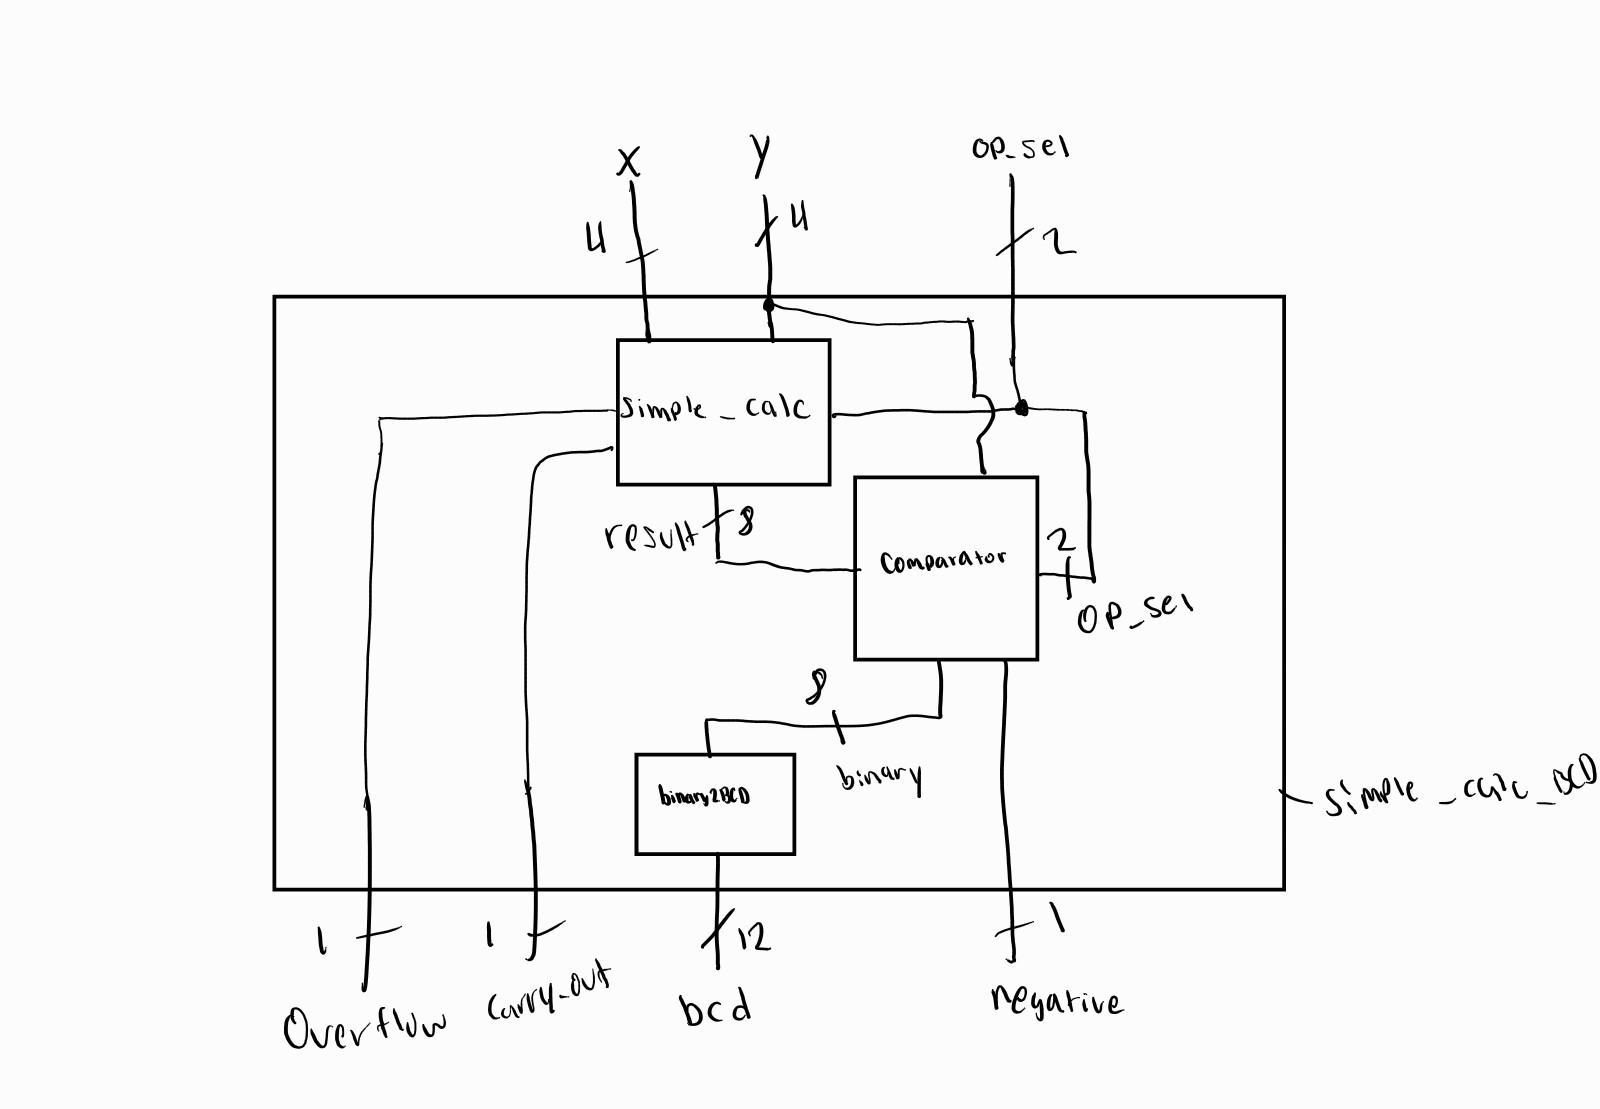 X
y
op_sel
4
4
2
simple_calc
result
8
comparator
2
op_sel
8
binary
binary2BCD
simple_calc_BCD
1
1
12
1
Overflow
carry_out
bcd
negative